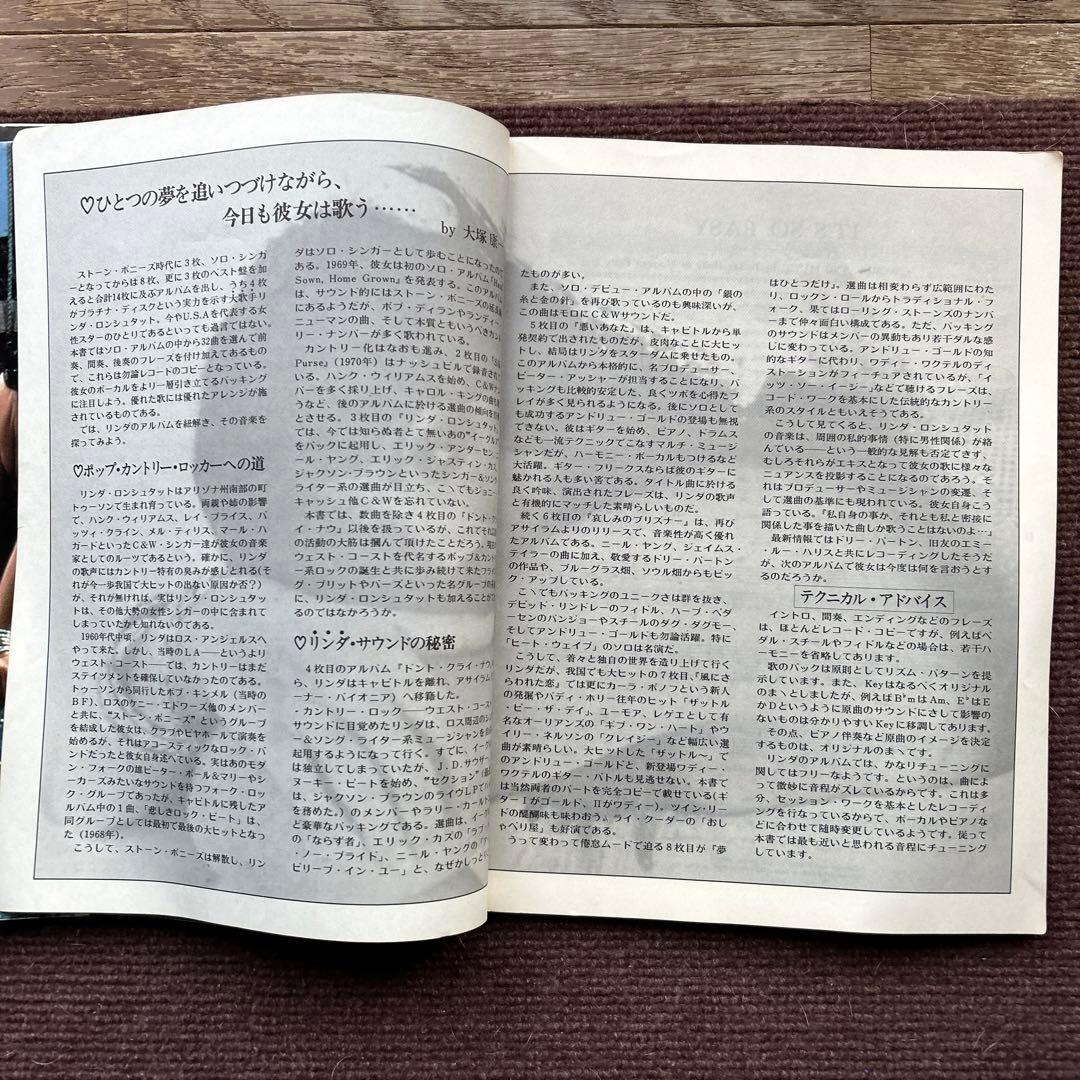 ♡ひとつの夢を追いつづけながら、
今日も彼女は歌う……
by 大塚康一
ストーン・ポニーズ時代に3枚、ソロ・シンガ
ーとなってからは8枚、更に3枚のベスト盤を加
えると合計14枚に及ぶアルバムを出し、うち4枚
がプラチナ・ディスクという実力を示す大歌手リ
ンダ・ロンシュタット。今やU.S.Aを代表する女
性スターのひとりであるといっても過言ではない。
本書ではソロ・アルバムの中から32曲を選んで前
奏、間奏、後奏のフレーズを付け加えてあるもの
で、これらは勿論レコードのコピーとなっている。
彼女のボーカルをより一層引き立てるバッキング
に注目しよう。優れた歌には優れたアレンジが施
されているものである。
では、リンダのアルバムを紐解き、その音楽を
探ってみよう。
♡ポップ・カントリー・ロッカーへの道
リンダ・ロンシュタットはアリゾナ州南部の町
トゥーソンで生まれ育っている。両親や姉の影響
で、ハンク・ウィリアムス、レイ・プライス、パ
ッツィ・クライン、メル・ティリス、マール・ハ
ガードといったC&W・シンガー達が彼女の音楽
家としてのルーツであるという。確かに、リンダ
の歌声にはカントリー特有の臭みが感じとれる(そ
れが今一歩我国で大ヒットの出ない原因か否？)
が、それが無ければ、実はリンダ・ロンシュタッ
トは、その他大勢の女性シンガーの中に含まれて
しまっていたかも知れないのである。
1960年代中頃、リンダはロス・アンジェルスへ
やって来た。しかし、当時のLA――というより
ウェスト・コースト――では、カントリーはまだ
ステイツメントを確保していなかったのである。
トゥーソンから同行したボブ・キンメル(当時の
BF)、ロスのケニー・エドワース他のメンバー
と共に、“ストーン・ポニーズ”というグループ
を結成した彼女は、クラブやビヤホールで演奏を
始めるが、それはアコースティックなロック・バ
ンドだったと彼女自身述べている。実はあのモダ
ン・フォークの雄ピーター・ポール&マリーやシ
ーカーズみたいなサウンドを持つフォーク・ロッ
ク・グループであったが、キャピトルに残したア
ルバム中の1曲、「悲しきロック・ビート」は、
同グループとしては初めて最後の大ヒットとなっ
た(1968年)。
こうして、ストーン・ポニーズは解散し、リン
ダはソロ・シンガーとして歩むことになったので
ある。1969年、彼女は初のソロ・アルバム『Hand
Sown, Home Grown』を発表する。このアルバム
は、サウンド的にはストーン・ポニーズの延長線
にあるようだが、ボブ・ディランやランディー・
ニューマンの曲、そして本質ともいうべきカント
リー・ナンバーが多く歌われている。
カントリー化はなおも進み、2枚目の『Silk
Purse』(1970年)はナッシュビルで録音されて
いる。ハンク・ウィリアムスを始め、C&Wナン
バーを多く採り上げ、キャロル・キングの曲も歌
うなど、後のアルバムに於ける選曲の傾向を彷彿
とさせる。3枚目の『リンダ・ロンシュタット』
では、今では知らぬ者とて無いあの“イーグルス”
をバックに起用し、エリック・アンダーセン、ニ
ール・ヤング、エリック・ジャスティン・カズ、
ジャクソン・ブラウンといったシンガー&ソング
ライター系の選曲が目立ち、こゝでもジョニー・
キャッシュ他C&Wを忘れていない。
本書では、数曲を除き4枚目の『ドント・クラ
イ・ナウ』以後を扱っているが、これでそれ以前
の活動の大筋は摑んで頂けたことだろう。現在の
ウェスト・コーストを代表するポップ&カントリ
ー系ロックの誕生と共に歩み続けて来たフライン
グ・ブリットやバーズといった名グループの経歴
に、リンダ・ロンシュタットも加えることができ
るのではなかろうか。
♡リンダ・サウンドの秘密
4枚目のアルバム『ドント・クライ・ナウ』か
ら、リンダはキャピトルを離れ、アサイラム(ワ
ーナー・パイオニア)へ移籍した。
カントリー・ロック――ウエスト・コースト・
サウンドに目覚めたリンダは、ロス周辺のシンガ
ー&ソング・ライター系ミュージシャンを自由に
起用するようになって行く。すでに、イーグルス
は独立してしまっていたが、J.D.サウザー、ス
ヌーキー・ピートを始め、“セクション”(最近で
は、ジャクソン・ブラウンのライヴLPでバック
を務めた。)のメンバーやラリー・カールトンな
ど豪華なバッキングである。選曲は、イーグルス
の「ならず者」、エリック・カズの「ラブ・ハズ
・ノー・プライド」、ニール・ヤングの「アイ・
ビリーブ・イン・ユー」と、なぜかしっとりとし
たものが多い。
また、ソロ・デビュー・アルバムの中の「銀の
糸と金の針」を再び歌っているのも興味深いが、
この曲はモロにC&Wサウンドだ。
5枚目の『悪いあなた』は、キャピトルから単
発契約で出されたものだが、皮肉なことに大ヒッ
トし、結局はリンダをスターダムに乗せたもの。
このアルバムから本格的に、名プロデューサー、
ピーター・アッシャーが担当することになり、バ
ッキングも比較的安定した、良くツボを心得たプ
レイが多く見られるようになる。後にソロとして
も成功するアンドリュー・ゴールドの登場も無視
できない。彼はギターを始め、ピアノ、ドラムス
なども一流テクニックでこなすマルチ・ミュージ
シャンだが、ハーモニー・ボーカルもつけるなど
大活躍。ギター・フリークスならば彼のギターに
魅かれる人も多い筈である。タイトル曲に於ける
良く吟味、演出されたフレーズは、リンダの歌声
と有機的にマッチした素晴らしいものだ。
続く6枚目の『哀しみのプリズナー』は、再び
アサイラムよりのリリースで、音楽性が高く優れ
たアルバムである。ニール・ヤング、ジェイムス・
テイラーの曲に加え、敬愛するドリー・パートン
の作品や、ブルーグラス畑、ソウル畑からもピッ
ク・アップしている。
こゝでもバッキングのユニークさは群を抜き、
デビッド・リンドレーのフィドル、ハーブ・ペダ
ーセンのバンジョーやスチールのダグ・ダグモー、
そしてアンドリュー・ゴールドも勿論活躍。特に
「ヒート・ウェイブ」のソロは名演だ。
こうして、着々と独自の世界を造り上げて行く
リンダだが、我国でも大ヒットの7枚目、『風にさ
らわれた恋』では更にカーラ・ボノフという新人
の発掘やバディ・ホリー往年のヒット「ザットル
・ビー・ザ・デイ」、ユーモア、レゲエとして有
名なオーリアンズの「ギブ・ワン・ハート」やウ
ィリー・ネルソンの「クレイジー」など幅広い選
曲が素晴らしい。大ヒットした「ザットル〜」で
のアンドリュー・ゴールドと、新登場ワディー・
ワクテルのギター・バトルも見逃せない。本書で
は当然両者のパートを完全コピーで載せている(ギ
ターIがゴールド、IIがワディー)。ツイン・リー
ドの醍醐味も味わおう。ライ・クーダーの「おし
ゃべり屋」も好演である。
うって変わって倦怠ムードで迫る8枚目が『夢
はひとつだけ』。選曲は相変わらず広範囲にわた
り、ロックン・ロールからトラディショナル・フ
ォーク、果てはローリング・ストーンズのナンバ
ーまで仲々面白い構成である。ただ、バッキング
のサウンドはメンバーの異動もあり若干ダルな感
じに変わっている。アンドリュー・ゴールドの知
的なギターに代わり、ワディー・ワクテルのディ
ストーションがフィーチュアされているが、「イ
ッツ・ソー・イージー」などで聴けるフレーズは、
コード・ワークを基本にした伝統的なカントリー
系のスタイルともいえそうである。
こうして見てくると、リンダ・ロンシュタット
の音楽は、周囲の私的事情(特に男性関係)が絡
んでいる――という一般的な見解も否定できず、
むしろそれらがエキスとなって彼女の歌に様々な
ニュアンスを投影することになるのであろう。そ
れはプロデューサーやミュージシャンの変遷、そ
して選曲の基準にも現われている。彼女自身こう
語っている。『私自身の事か、それとも私と密接に
関係した事を描いた曲しか歌うことはないのよ…』
最新情報ではドリー・パートン、旧友のエミー
・ルー・ハリスと共にレコーディングしたそうだ
が、次のアルバムで彼女は今度は何を言おうとす
るのだろうか。
テクニカル・アドバイス
イントロ、間奏、エンディングなどのフレーズ
は、ほとんどレコード・コピーですが、例えばペ
ダル・スチールやフィドルなどの場合は、若干ハ
ーモニーを省略してあります。
歌のバックは原則としてリズム・パターンを提
示しています。また、Keyはなるべくオリジナル
のまゝとしましたが、例えばB♭mはAm、E♭はE
かDというように原曲のサウンドにさして影響の
ないものは分かりやすいKeyに移調してあります。
その点、ピアノ伴奏など原曲のイメージを決定
するものは、オリジナルのまゝです。
リンダのアルバムでは、かなりチューニングに
関してはフリーなようです。というのは、曲によ
って微妙に音程がズレているからです。これは多
分、セッション・ワークを基本としたレコーディ
ングを行なっているからで、ボーカルやピアノな
どに合わせて随時変更しているようです。従って
本書では最も近いと思われる音程にチューニング
しています。